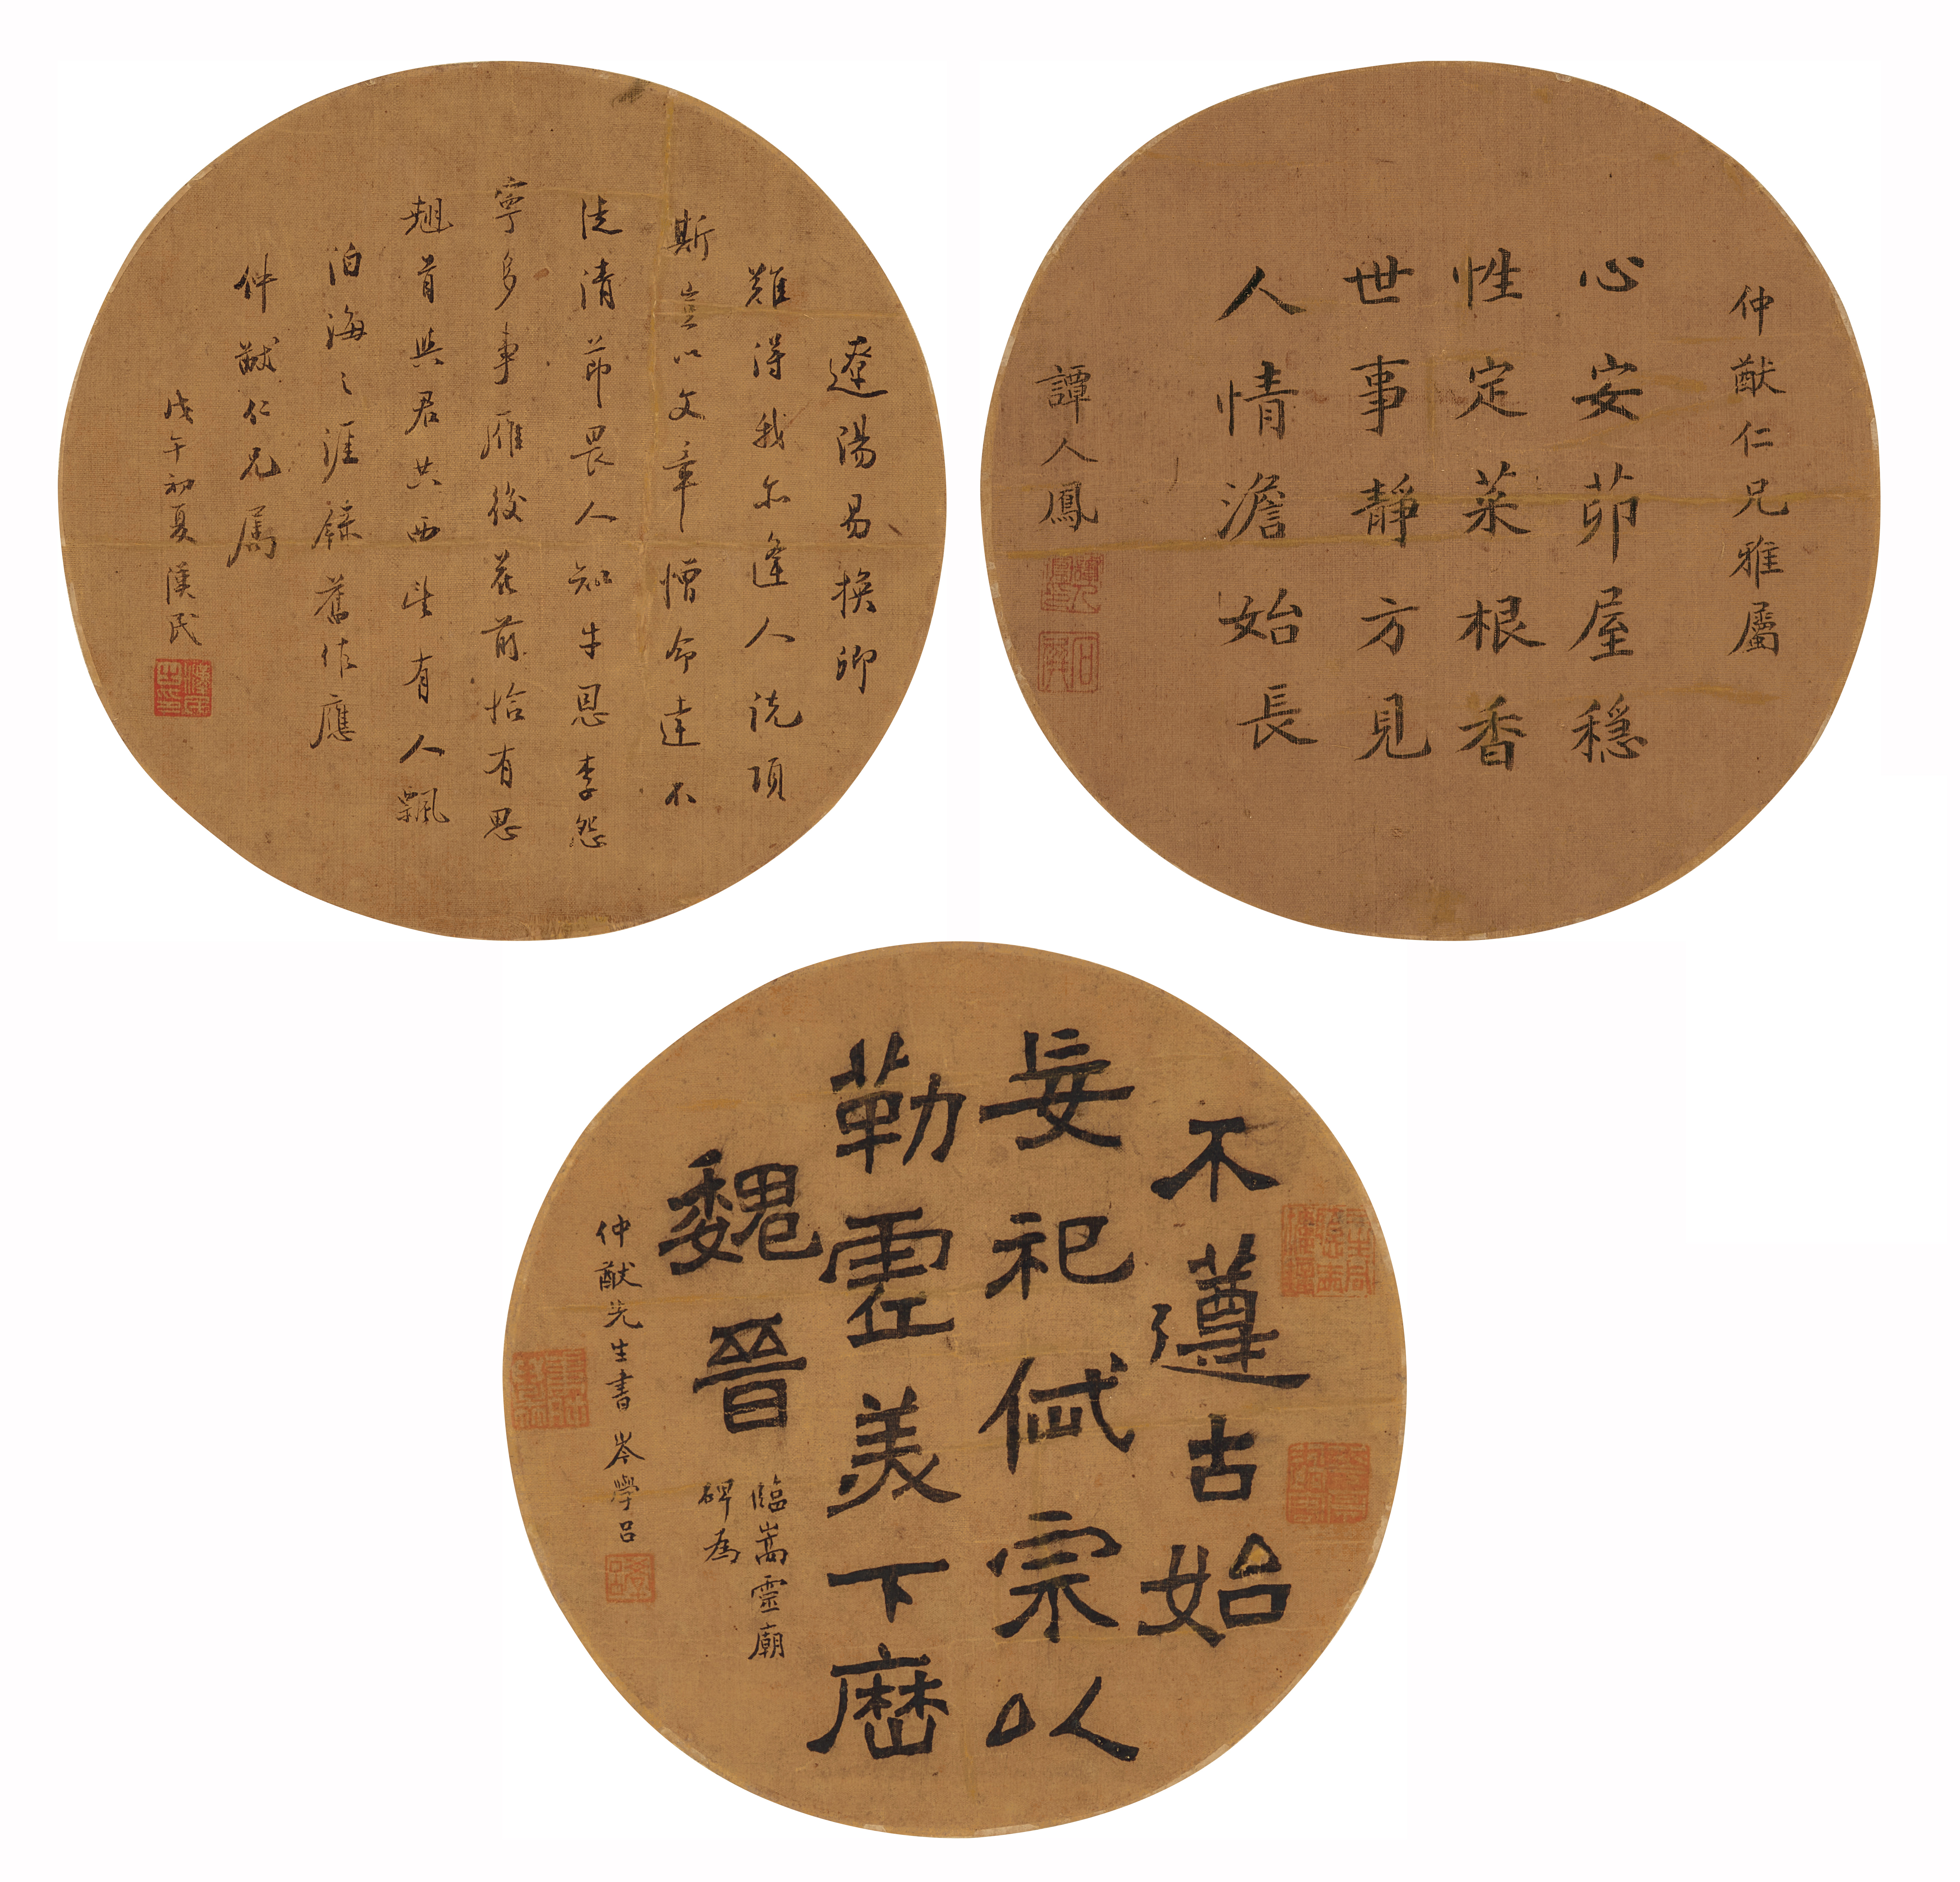 仲猷仁兄雅屬
心安茆屋穩
性定菜根香
世事靜方見
人情澹始長
譚人鳳
遼陽易換卿
難得我亦逢人說項
斯豈以文章憎命達不
清節畏人知牛恩李怨
寧多事雁後花前恰有思
翹首與君共西望有人飄
泊海之涯錄舊作應
仲猷仁兄屬
戊午初夏 漢民
漢民之印
不遵古始
妄祀岱宗以
勒靈美下曆
魏晉
臨嵩靈廟
碑為
仲猷先生書 岑學呂